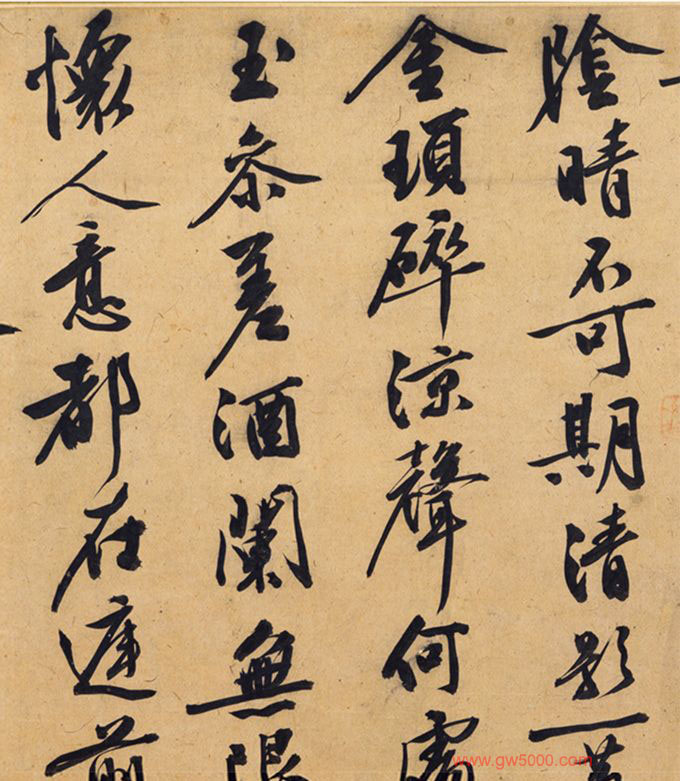 陰晴不可期清影一
金瑣碎涼聲何處
玉參差酒闌無限
懷人意都在庭前
www.gw5000.com